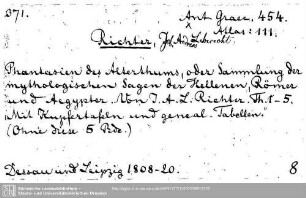 371.
Ant. Graec. 454.
Atlas: 111.
Richter, Joh. Andreas Liberecht.
Phantasien des Alterthums, oder Sammlung der
mythologischen Sagen der Hellenen, Römer
und Aegypter. Von J. A. L. Richter. Th. 1-5.
Mit Kupfertafeln und geneal. Tabellen.
(Ohne diese 5 Bde.)
Dessau und Leipzig 1808-20.
8